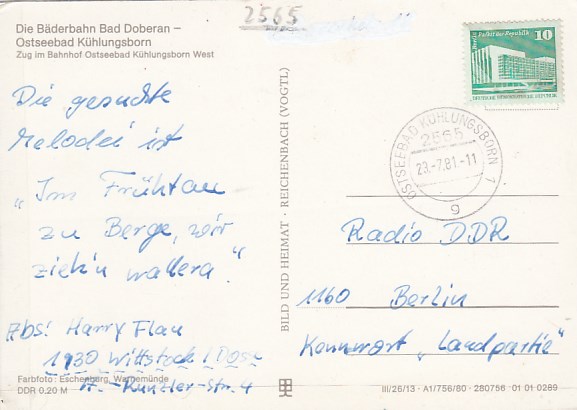 Die Bäderbahn Bad Doberan –
Ostseebad Kühlungsborn
Zug im Bahnhof Ostseebad Kühlungsborn West
2565
Die gesuchte
Melodei ist
„Im Frühtau
zu Berge, wir
zieh'n wallera."
Abs: Harry Flau
1930 Wittstock / Dosse
H.-Künzler-Str. 4
Farbfoto: Eschenburg, Warnemünde
DDR 0,20 M
BILD UND HEIMAT · REICHENBACH (VOGTL)
Berlin Palast der Republik 10
DEUTSCHE DEMOKRATISCHE REPUBLIK
OSTSEEBAD KÜHLUNGSBORN 1
2565
23.-7.81.-11
g
Radio DDR
1160 Berlin
Kennwort „Landpartie"
III/26/13 · A1/756/80 · 280756 01 01 0289